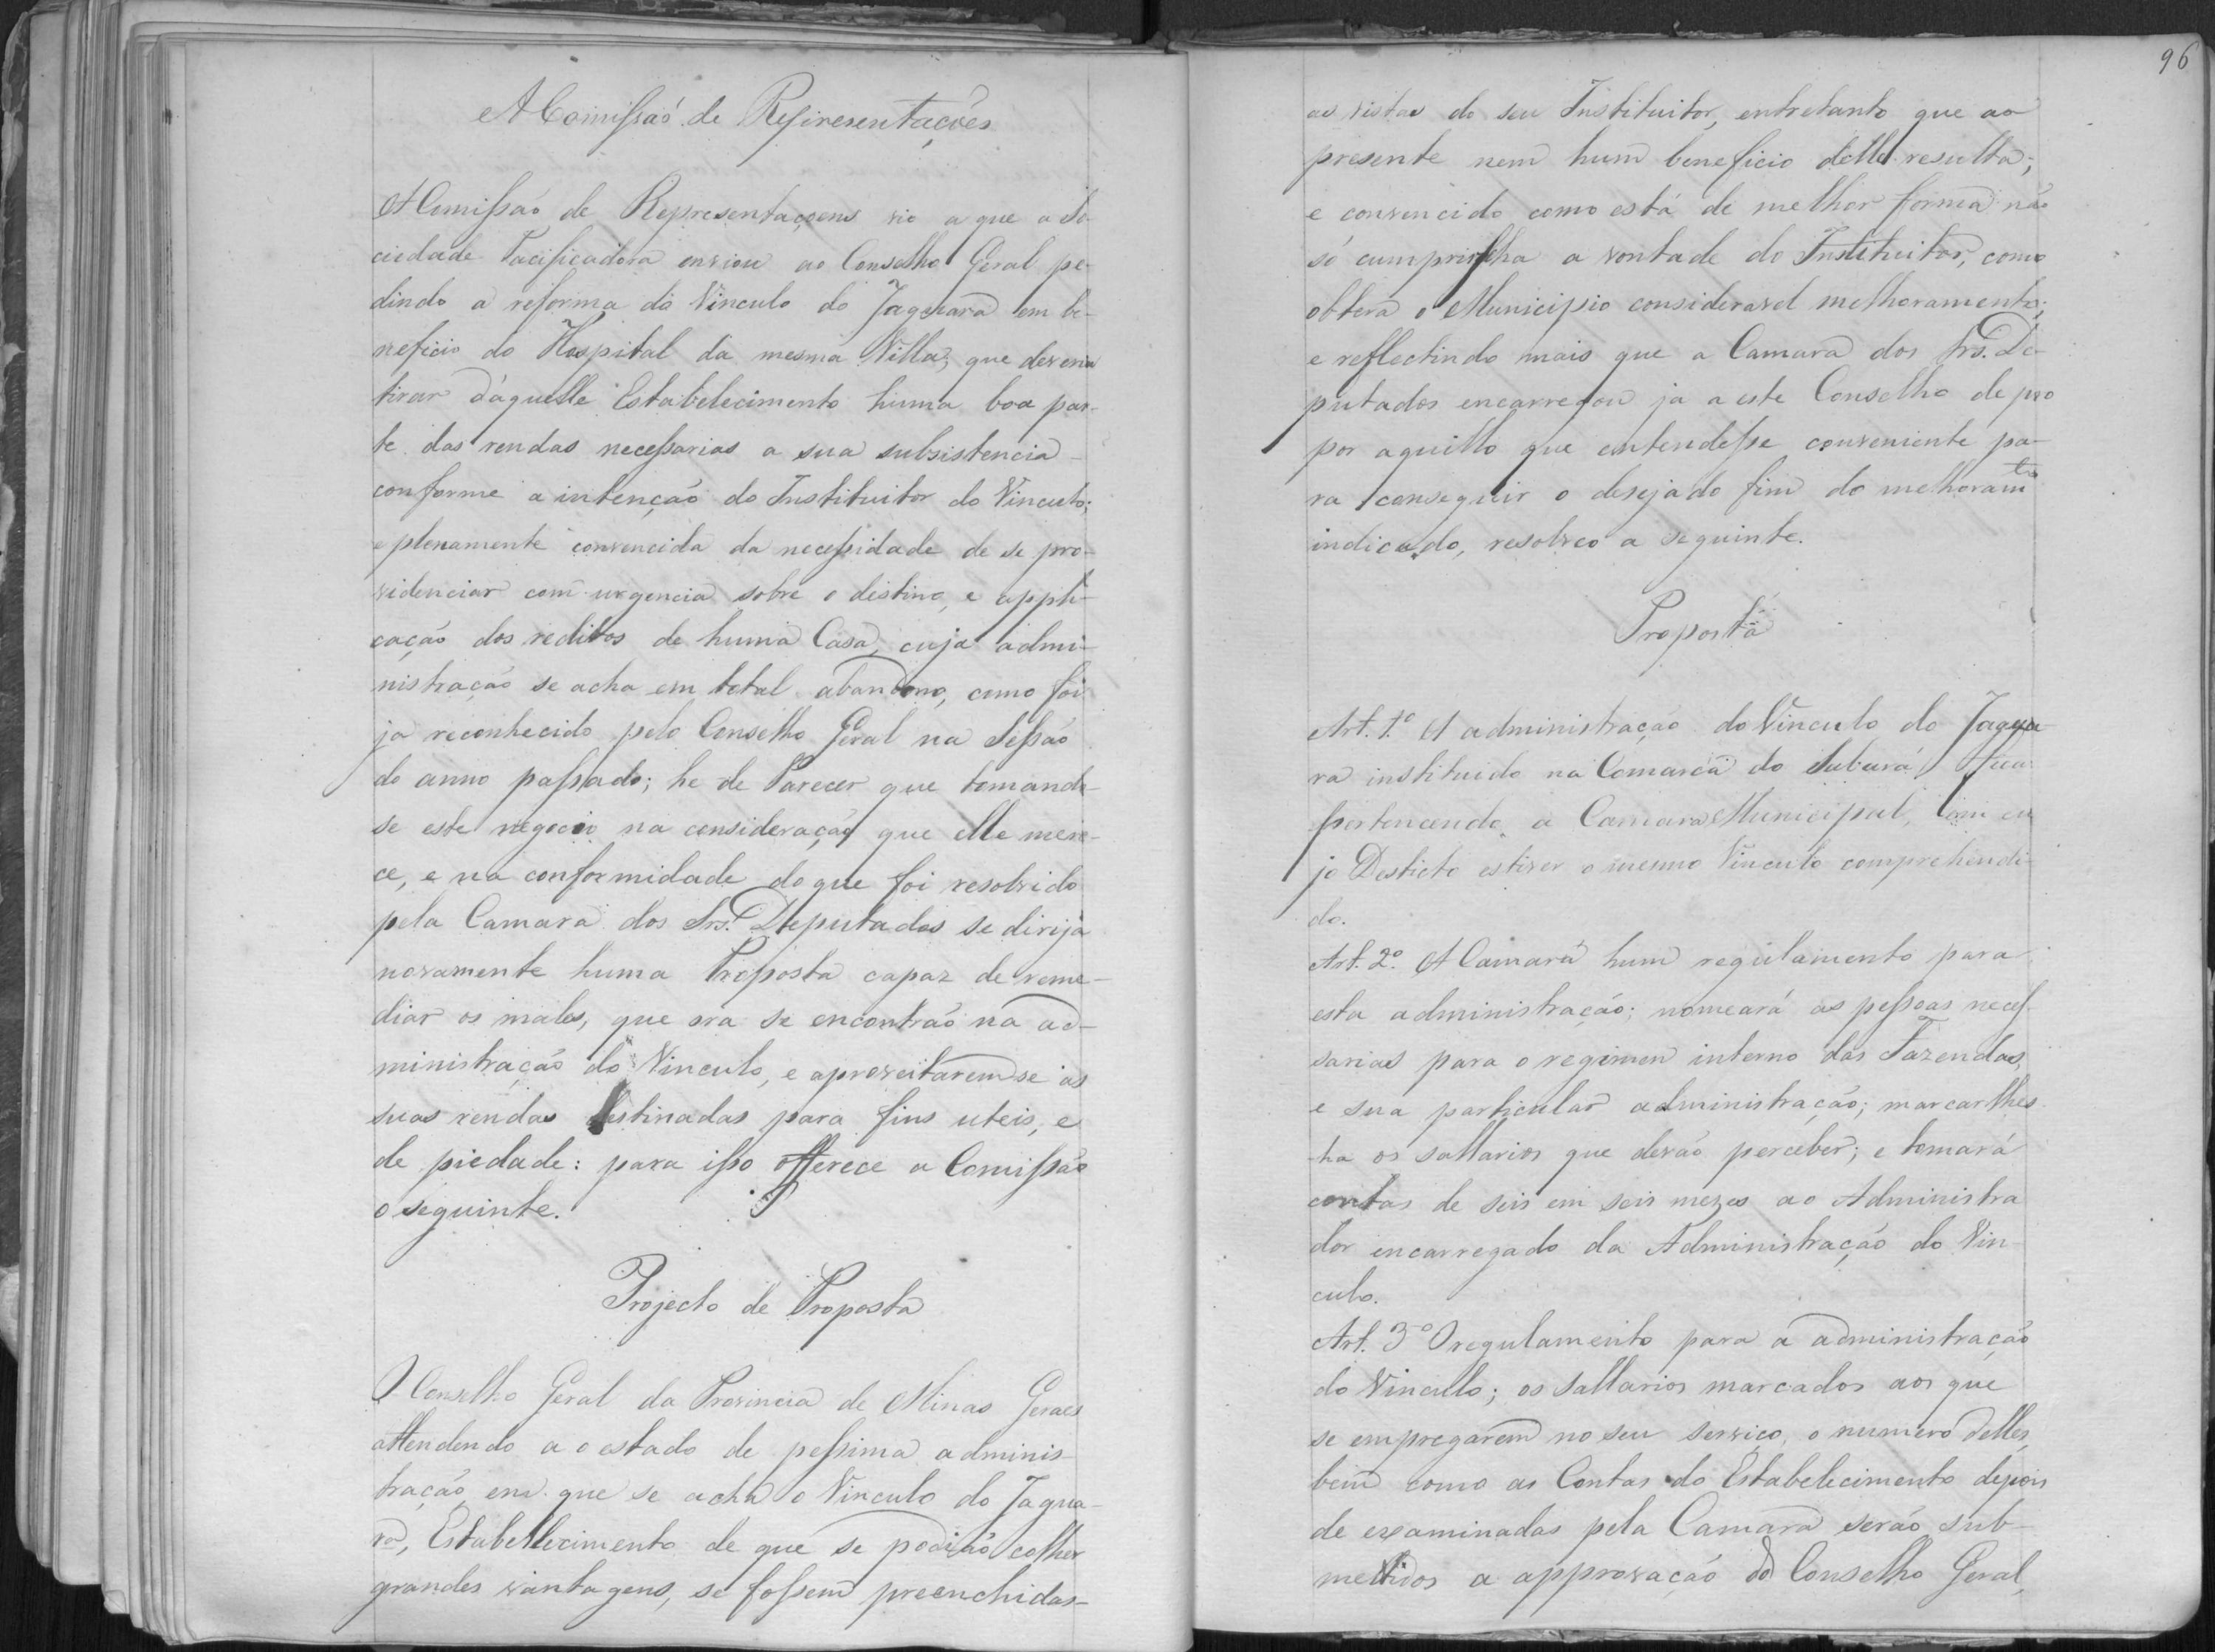 A Comissaõ de Representações
A Comissaõ de Representaçoens vio a que a So-
ciedade Pacificadora enviou ao Conselho Geral pe-
dindo a reforma do Vinculo do Jaguara em be-
neficio do Hospital da mesma Villa, que deveria
tirar d'aquelle Estabelecimento huma boa par-
te das rendas necessarias a sua subsistencia
conforme a intenção do Instituitor do Vinculo;
e plenamente convencida da necessidade de se pro-
videnciar com urgencia sobre o distino, e appli-
cação dos reditos de huma Casa, cuja admi-
nistração se acha em total abandono, como foi
ja reconhecido pelo Conselho Geral na Sessaõ
do anno passado; he de Parecer que tomando-
se este negocio na consideração que elle mere-
ce, e na conformidade do que foi resolvido
pela Camara dos Srs. Deputados se dirija
novamente huma Proposta capaz de reme-
diar os males, que ora se encontraõ na ad-
ministração do Vinculo, e aproveitarem se as
suas rendas destinadas para fins uteis, e
de piedade: para isso offerece a Comissaõ
o seguinte.
Projecto de Proposta
O Conselho Geral da Provincia de Minas Geraes
attendendo a o estado de pessima adminis-
tração em que se acha o Vinculo do Jagua-
ra, Estabellecimento de que se podiaõ colher
grandes vantagens, se fossem preenchidas-
96
as vistas do seu Instituitor, entretanto que ao
presente nem hum beneficio delle resulta;
e convencido como está de melhor forma não
só cumprirse ha a vontade do Instituitor, como
obterá o Municipio consideravel melhoramento;
e reflectindo mais que a Camara dos Srs. De
putados encarregou ja a este Conselho de pro
por aquillo que entendesse conveniente pa-
ra conseguir o desejado fim do melhoramto
indicado, resolveo a seguinte.
Proposta
Art. 1.º A administração do Vinculo do Jagua
ra instituido na Comarca do Sabará fica
pertencendo a Camara Municipal, em cu
jo Desticto estiver o mesmo Vinculo comprehendi-
do.
Art. 2.º A Camará hum regulamento para
esta administração; nomeará as pessoas neces
sarias para o regimen interno das Fazendas,
e sua particular administração; marcar lhes
-ha os sallarios que devão perceber; e tomará
contas de seis em seis mezes ao Administra
dor encarregado da Administração do Vin-
culo.
Art. 3º O regulamento para a administração
do Vinculo; os sallarios marcados aos que
se empregarem no seu serviço, o numero delles,
bem como as Contas do Estabelecimento depois
de examinadas pela Camara serão sub-
mettidos a approvação do Conselho Geral,